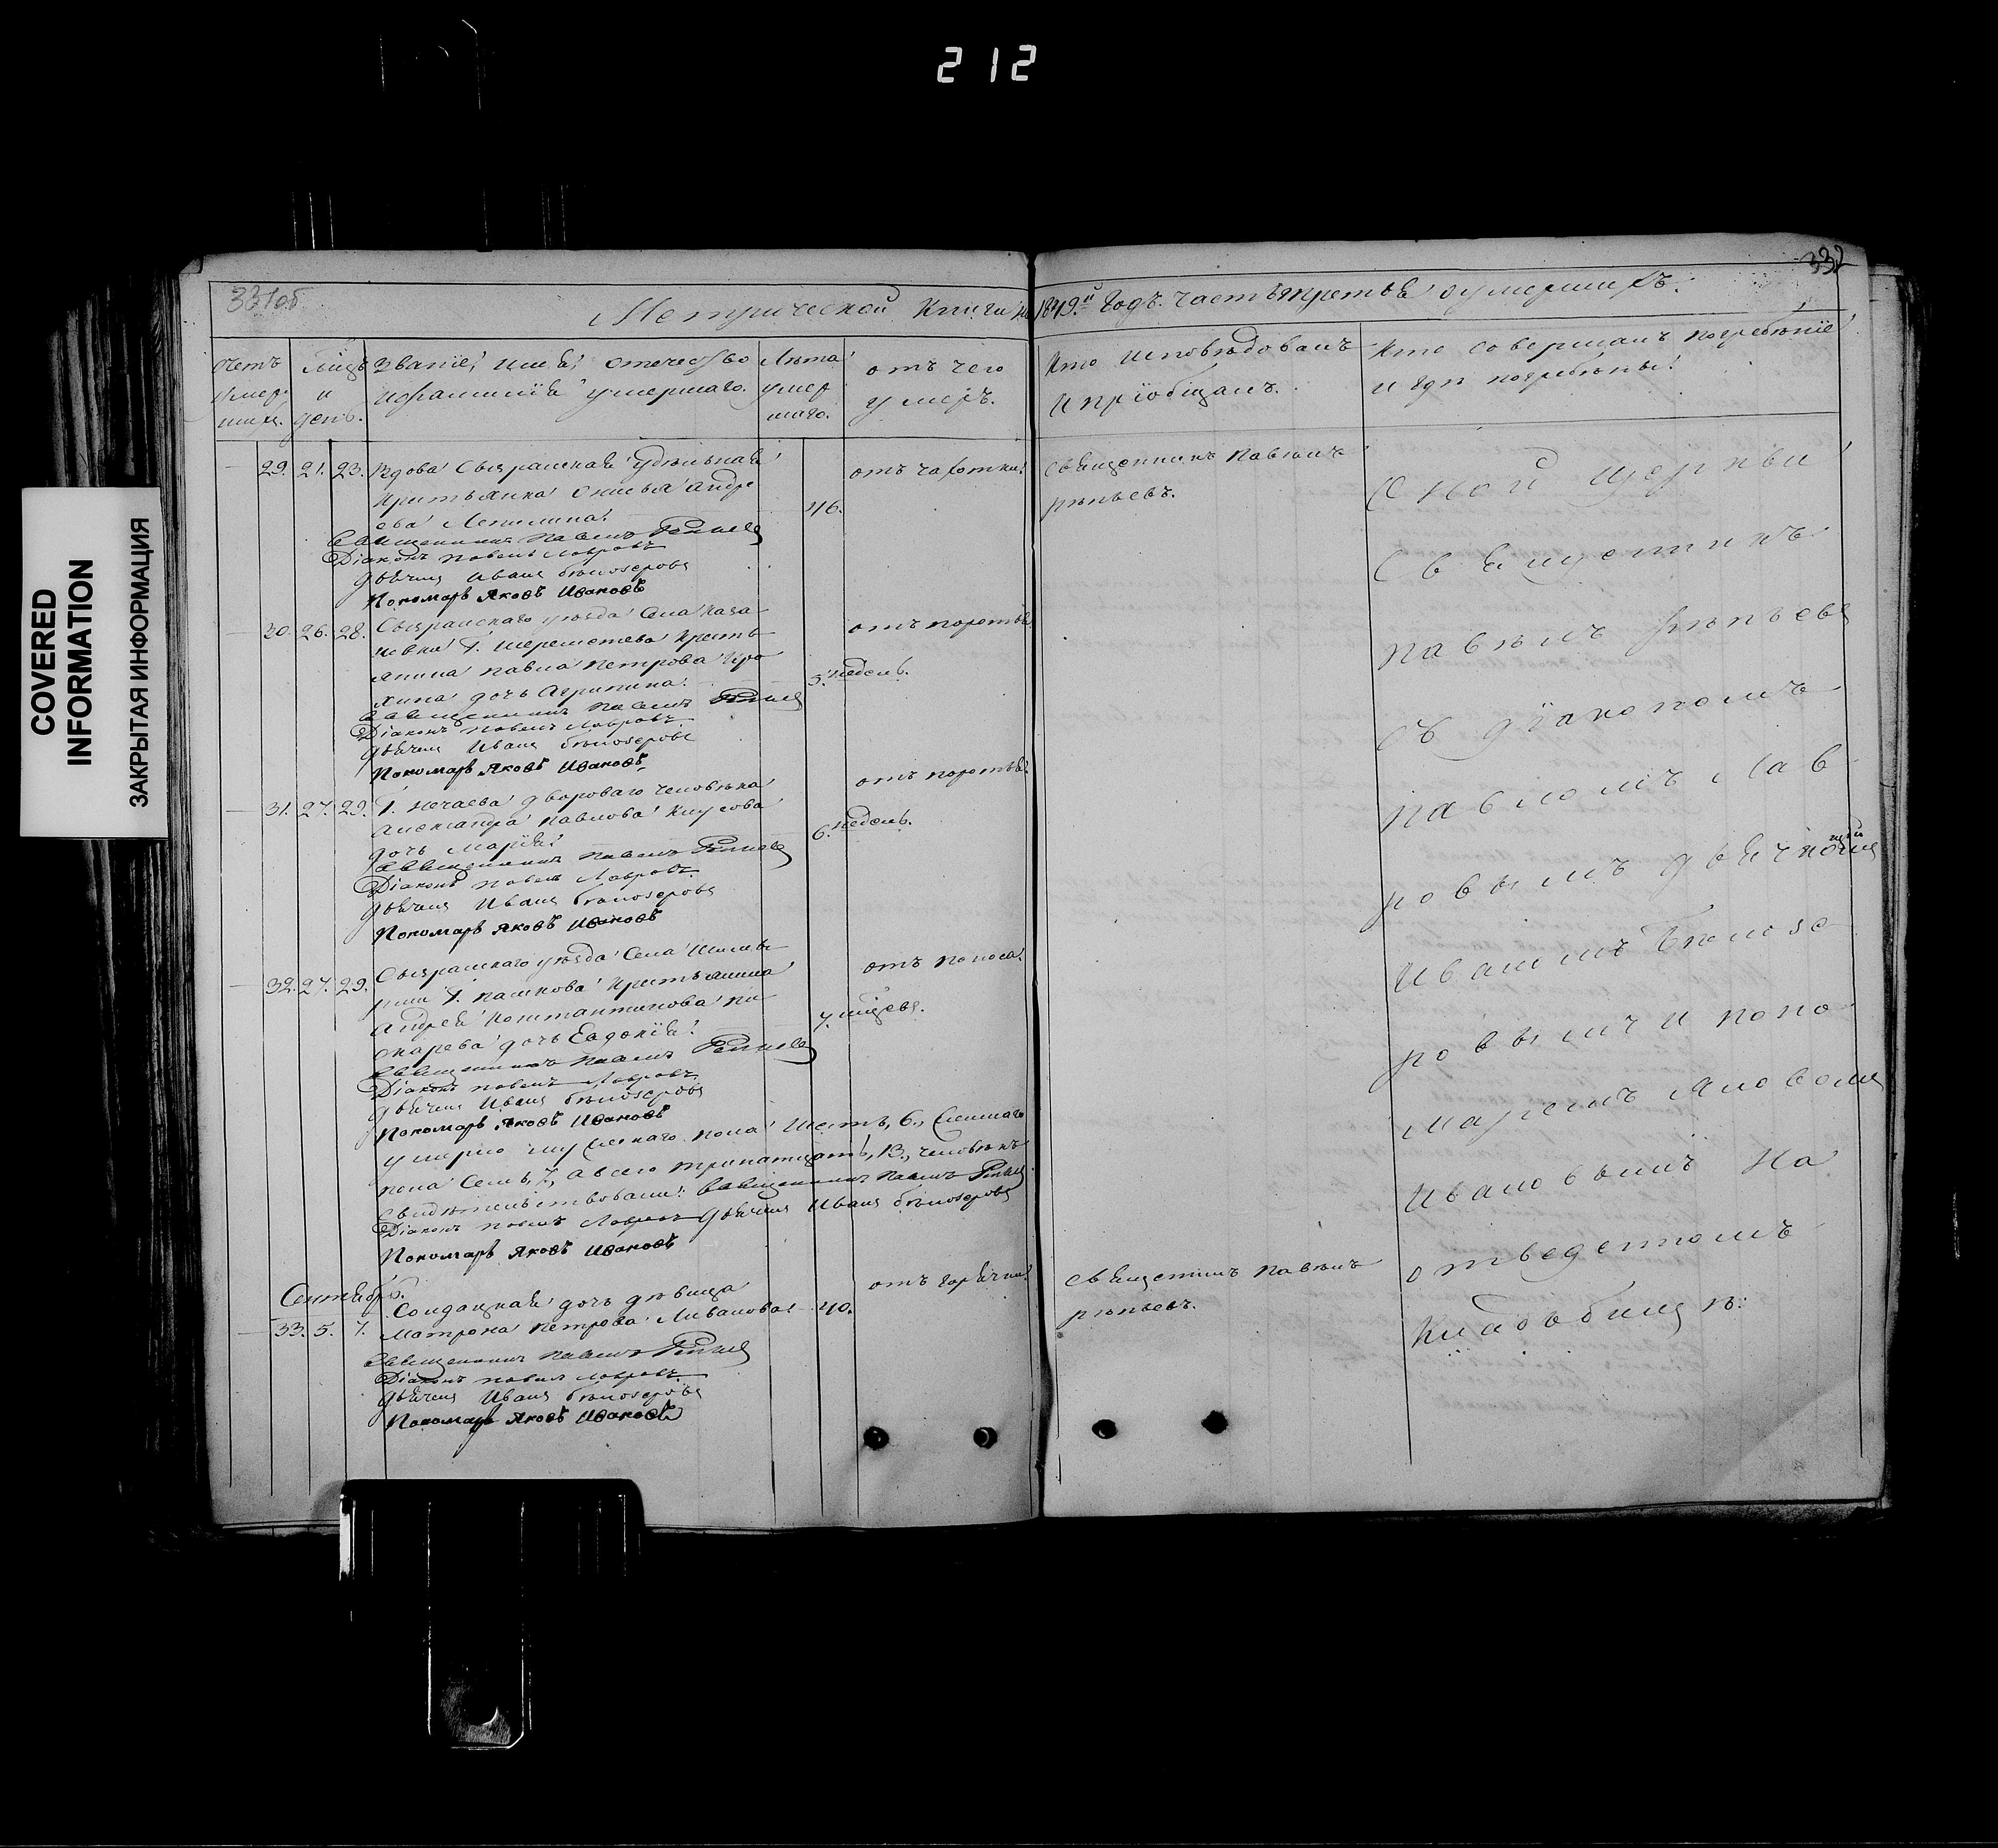 212
COVERED
INFORMATION
ЗАКРЫТАЯ ИНФОРМАЦИЯ
331об
332
Метрической книги на 1849й Годъ. часть третья о умершихъ.
Счетъ умер шихъ.
Мѣсяцъ и день.
Званіе, имя, отечество и фамилія умершаго.
Лѣта умер шаго.
отъ чего умеръ.
Кто исповѣдовалъ и пріобщалъ.
Кто совершалъ погребеніе и гдѣ погребены.
29. 21. 23. Вдова Сызранская удѣльная
крестьянка Андре
ева
46.
отъ чахотки
Священникъ Павелъ
рѣпьевъ.
Священникъ Павелъ Репьевъ
Діаконъ Павелъ Лавровъ
дьячекъ Иванъ бѣлозеровъ
Пономарь Яковъ Ивановъ
30. 26. 28. Сызранскаго уѣзда Села Каза
ковки Г. Шереметева кресть
янина Павла Петрова
дочь Агрипина.
5. недель.
Священникъ Павелъ Репьевъ
Діаконъ Павелъ Лавровъ
дьячекъ Иванъ бѣлозеровъ
Пономарь Яковъ Ивановъ
31. 27. 29. Г. Нечаева двороваго человѣка
Александра Павлова
дочь Марія.
6. недель.
Священникъ Павелъ Репьевъ
Діаконъ Павелъ Лавровъ
дьячекъ Иванъ бѣлозеровъ
Пономарь Яковъ Ивановъ
32. 27. 29. Сызранскаго уѣзда Села
Г. Пашкова крестьянина
Андрея Константинова пи
скарева дочь Евдокія.
7. мѣсяцевъ.
отъ поноса.
Священникъ Павелъ Репьевъ
Діаконъ Павелъ Лавровъ
дьячекъ Иванъ бѣлозеровъ
Пономарь Яковъ Ивановъ
умерло мужескаго пола шесть, 6., женскаго
пола семь, 7, а всего тринатцать, 13., человѣкъ
свидѣтельствовали: Священникъ Павелъ Репьевъ
Діаконъ Павелъ Лавровъ дьячекъ Иванъ бѣлозеровъ
Пономарь Яковъ Ивановъ
Сентябрь.
Солдацкая дочь дѣвица
33. 5. 7. Матрона Петрова Ливанова
40.
отъ горячки
Священникъ Павелъ
рѣпьевъ.
Священникъ Павелъ Репьевъ
Діаконъ Павелъ Лавровъ
дьячекъ Иванъ бѣлозеровъ
Пономарь Яковъ Ивановъ
Священникъ
Павелъ Рѣпьевъ
съ діакономъ
Павломъ Лав
ровымъ дьячкомъ
Иваномъ Бѣлозе
ровымъ и поно
маремъ Яковомъ
Ивановымъ На
отведенномъ
Кладбищѣ: